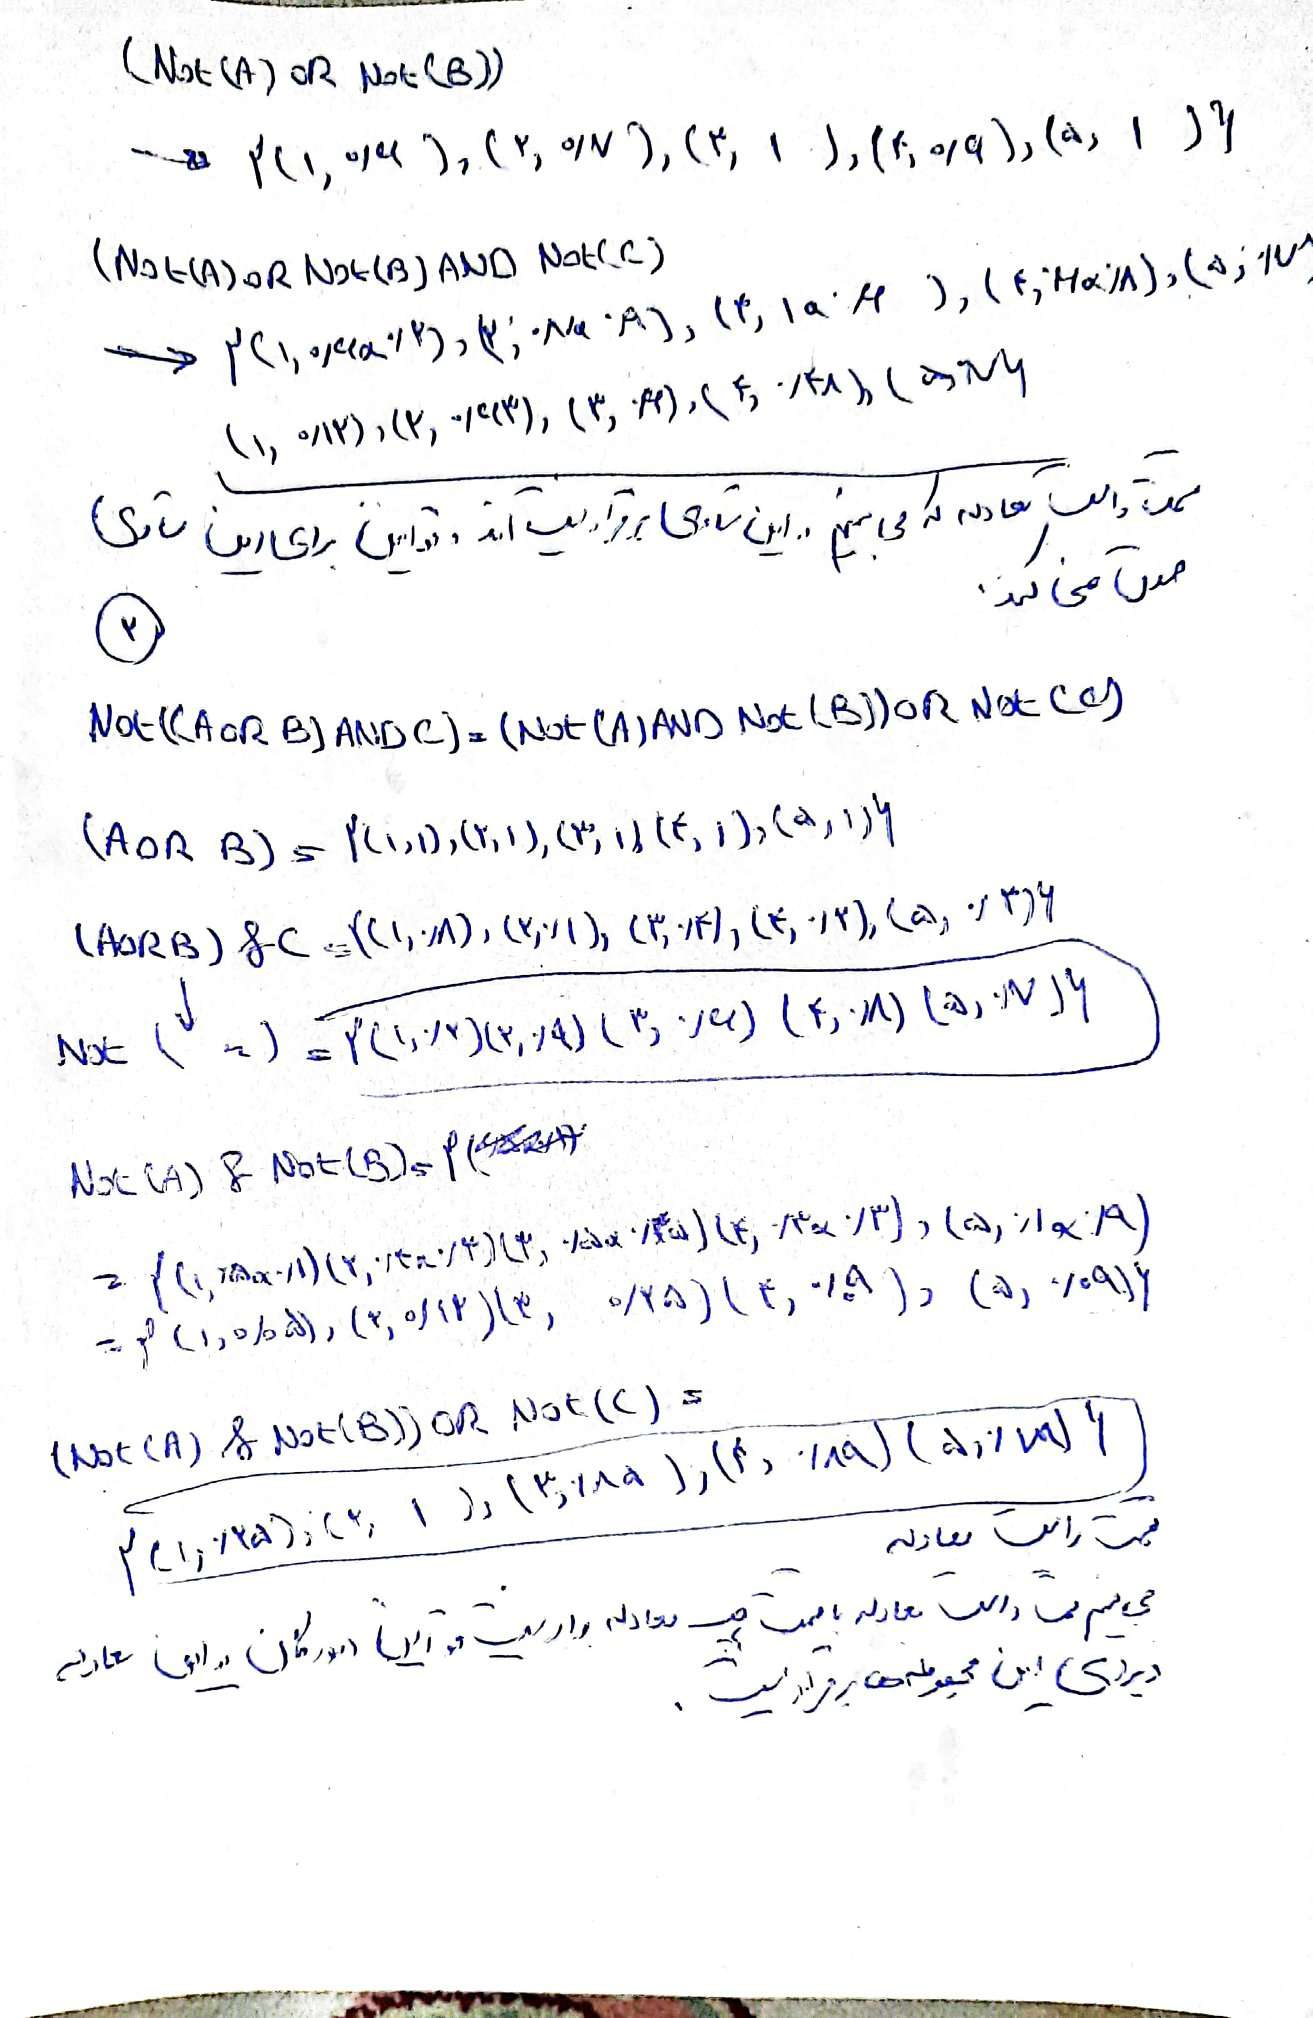 (Not (A) OR Not (B))
→ {(۱, ۰/۶), (۲, ۰/۷), (۳, ۱), (۴, ۰/۹), (۵, ۱)}
(Not (A) OR Not (B) AND Not (C)
→ {(۱, ۰/۶×۰/۲), (۲, ۰/۷×۰/۹), (۳, ۱×۰/۶), (۴, ۰/۶×۰/۸), (۵,
(۱, ۰/۱۲), (۲, ۰/۶۳), (۳, ۰/۶), (۴, ۰/۴۸), (۵, ۰/۷)}
سمت راست معادله که می بینیم در این تساوی برقرار نیست و قوانین برای این تساوی
صدق نمی کند.
۲
Not ((A OR B) AND C) = (Not (A) AND Not (B)) OR Not (C)
(A OR B) = {(۱,۱), (۲,۱), (۳,۱), (۴,۱), (۵,۱)}
(A OR B) & C = {(۱, ۰/۸), (۲, ۰/۱), (۳, ۰/۴), (۴, ۰/۲), (۵, ۰/۳)}
Not ( ~ ) = {(۱, ۰/۲) (۲, ۰/۹) (۳, ۰/۶) (۴, ۰/۸) (۵, ۰/۷)}
Not (A) & Not (B) = {(
= {(۱, ۰/۵×۰/۱) (۲, ۰/۳×۰/۴) (۳, ۰/۵×۰/۵) (۴, ۰/۳×۰/۳), (۵, ۰/۱×۰/۹)
= {(۱, ۰/۰۵), (۲, ۰/۱۲) (۳, ۰/۲۵) (۴, ۰/۰۹), (۵, ۰/۰۹)}
(Not (A) & Not (B)) OR Not (C) =
{(۱, ۰/۲۵), (۲, ۱), (۳, ۰/۸۵), (۴, ۰/۸۹) (۵, ۰/۷۹)}
سمت راست معادله
می بینیم سمت راست معادله با سمت چپ معادله برابر نیست و قوانین دمورگان در این معادله
و برای این مجموعه ها برقرار نیست.